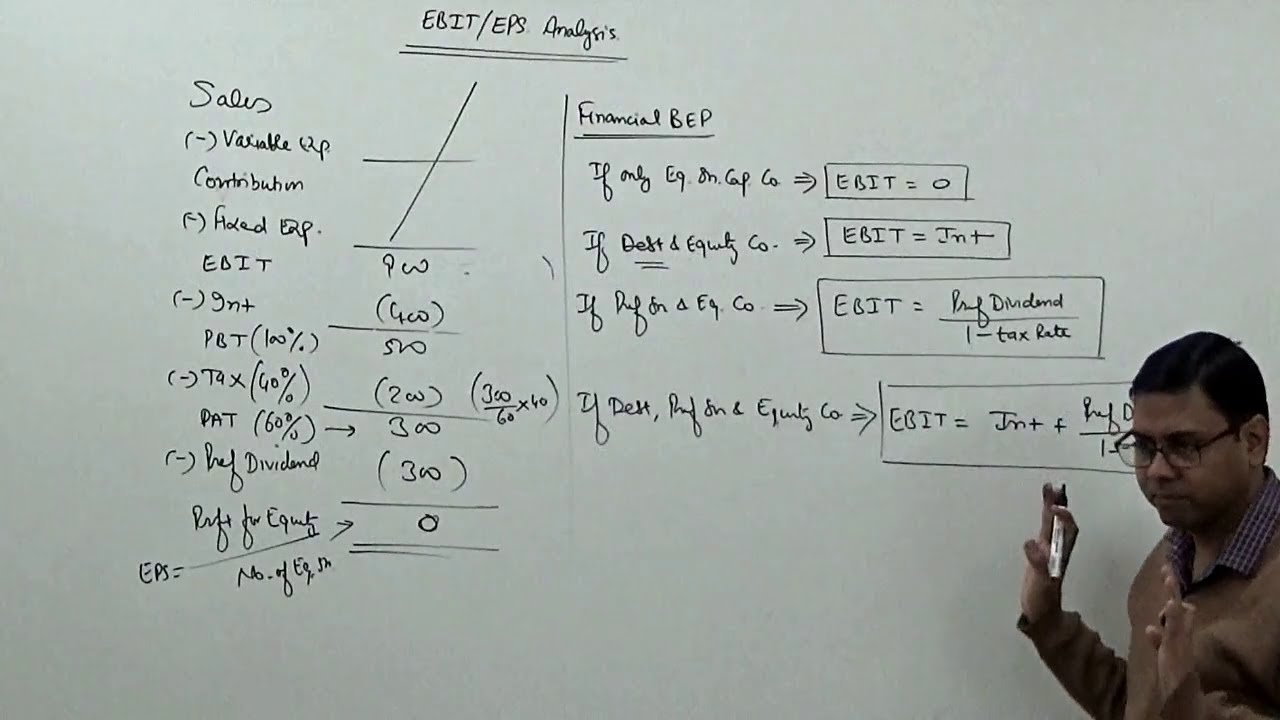 EBIT/EPS Analysis
Sales
(-) Variable Exp.
Contribution
(-) Fixed Exp.
EBIT 900
(-) Int (400)
PBT (100%) 500
(-) Tax (40%) (200) (300/60 x 40)
PAT (60%) → 300
(-) Pref Dividend (300)
Profit for Equity → 0
EPS = No. of Eq. Sh
Financial BEP
If only Eq. Sh. Cap. Co ⇒ EBIT = 0
If Debt & Equity Co. ⇒ EBIT = Int
If Pref Sh & Eq. Co. ⇒ EBIT = Pref Dividend / 1 - tax Rate
If Debt, Pref Sh & Equity Co ⇒ EBIT = Int + Pref D / 1-